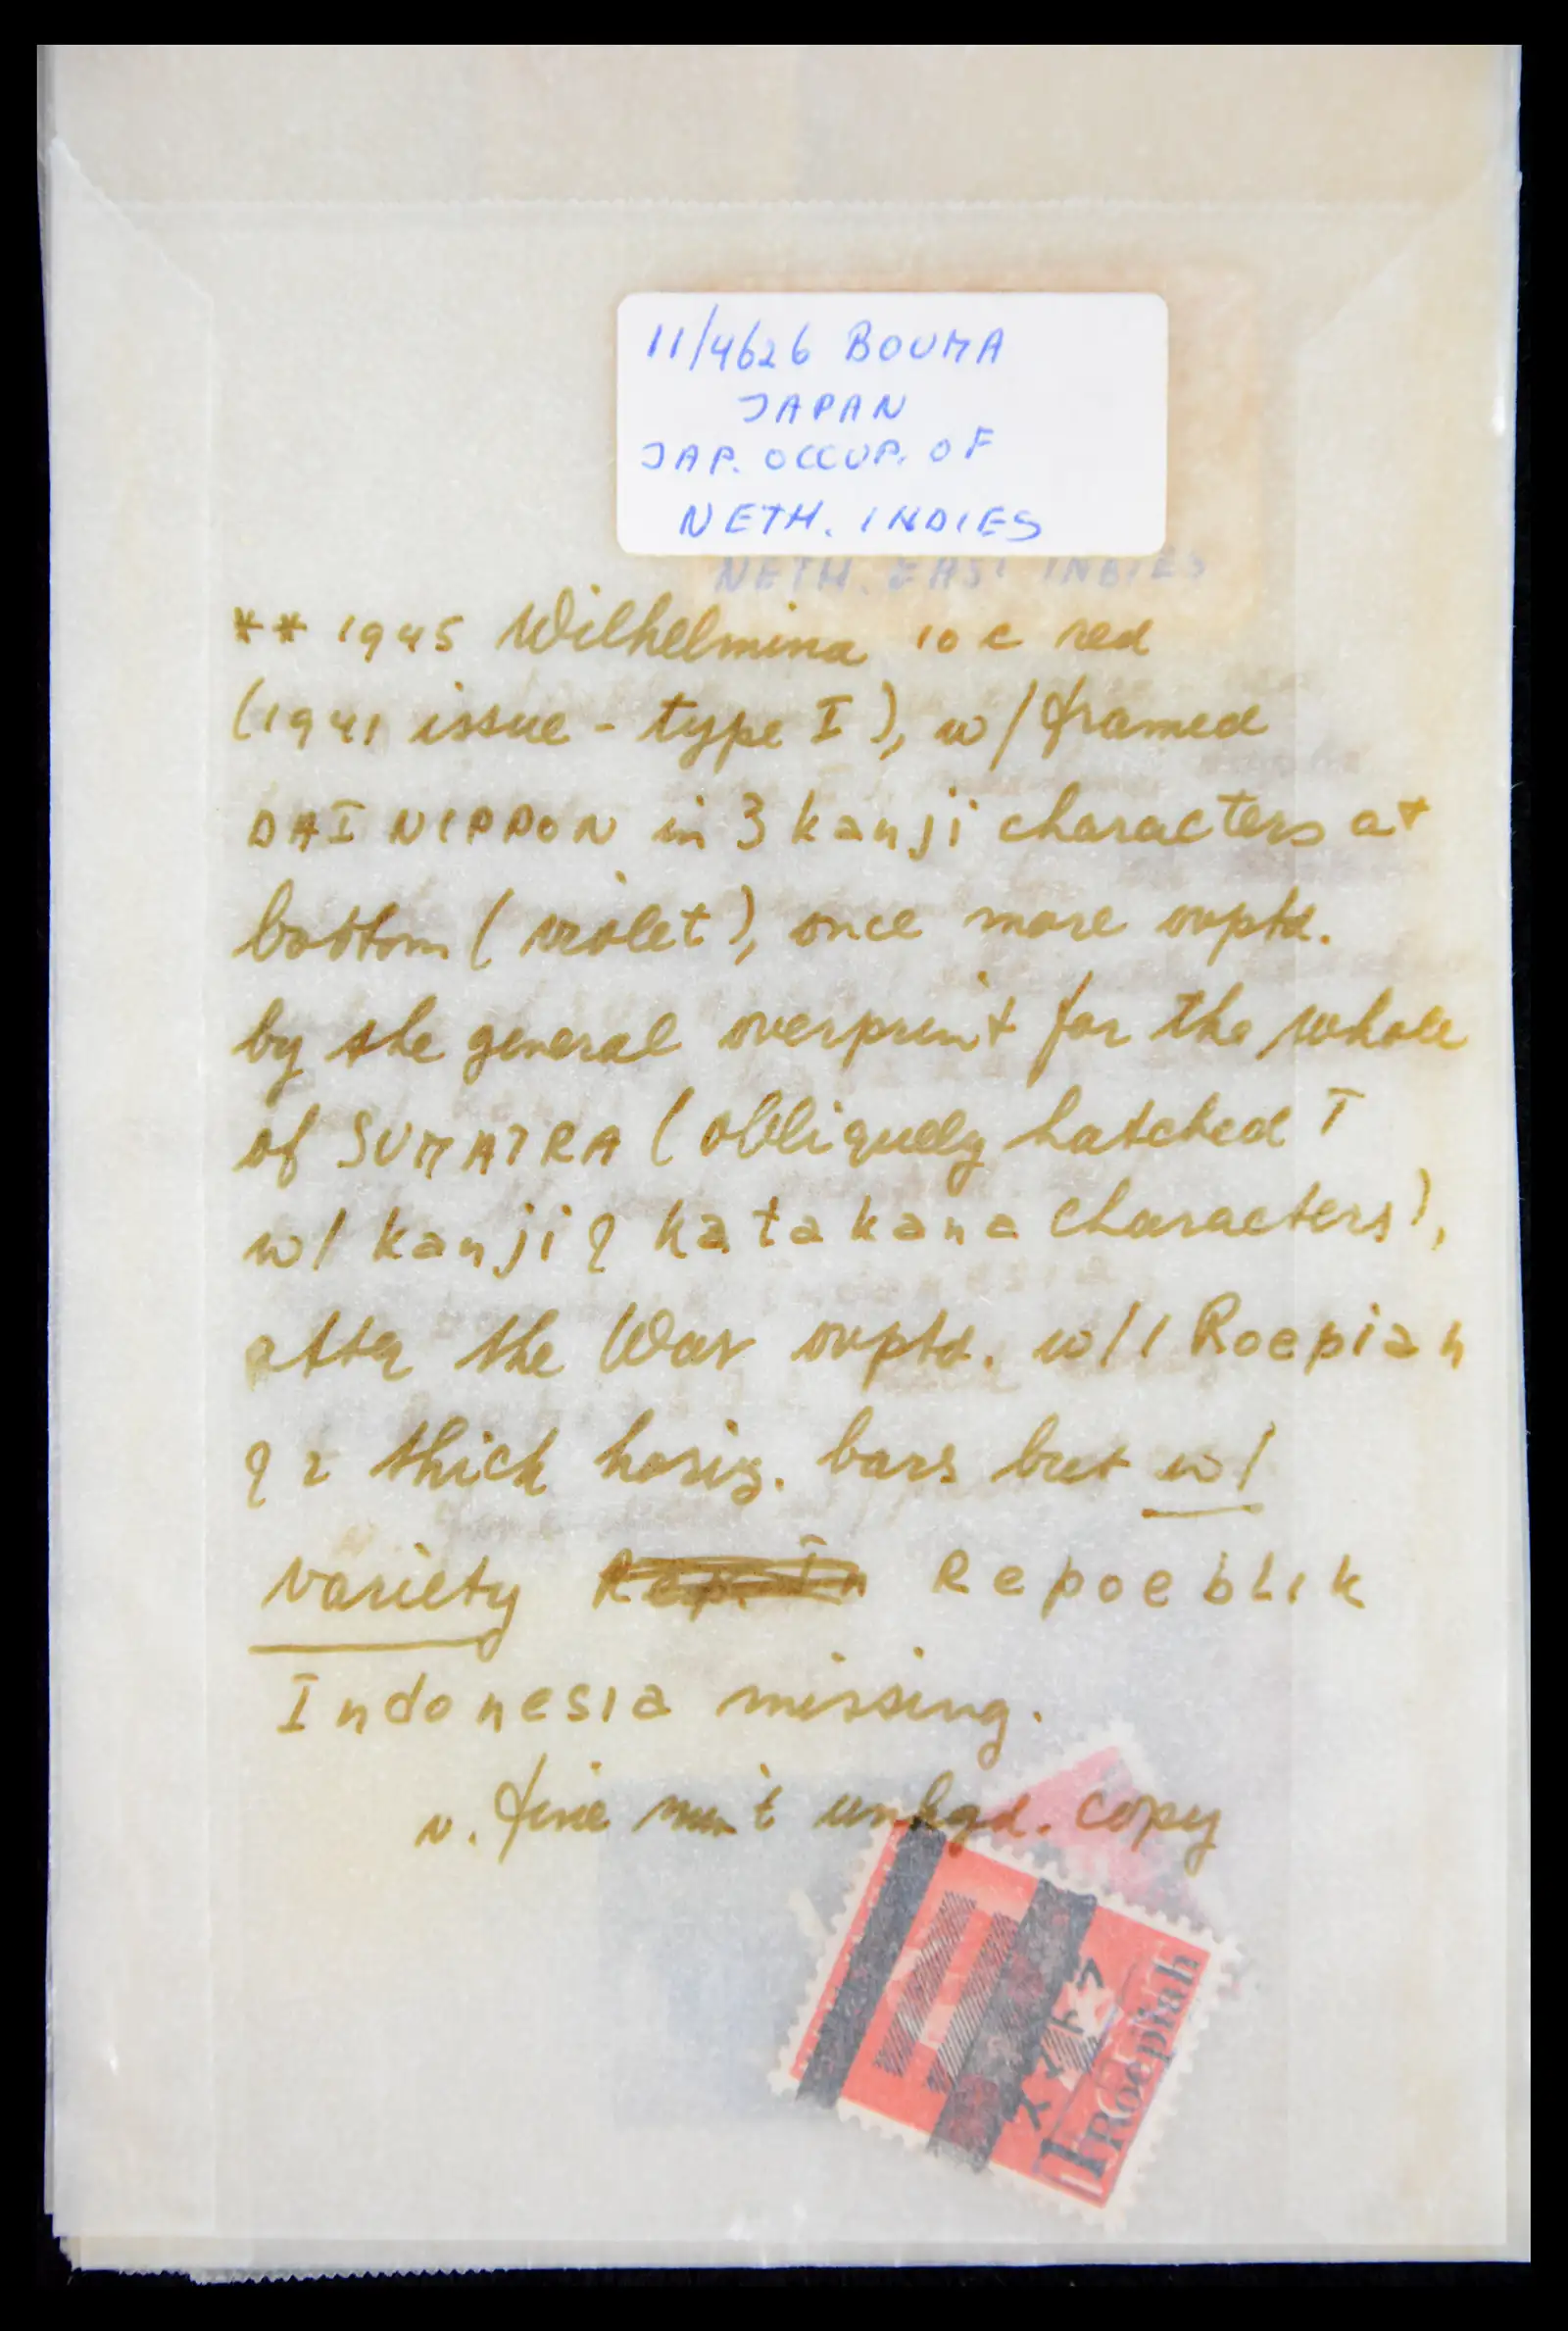 11/4626 BOUMA
JAPAN
JAP. OCCUP. OF
NETH. INDIES
NETH. EAST INDIES
** 1945 Wilhelmina 10 c red
(1941 issue - type I), w/ framed
DAI NIPPON in 3 kanji characters at
bottom (violet), once more ovptd.
by the general overprint for the whole
of SUMATRA (obliquely hatched T
w/ kanji & katakana characters),
after the War ovptd. w/ 1 Roepiah
& 2 thick horiz. bars but w/
variety Repoeblik
Indonesia missing.
v. fine mint unhgd. copy
1 Roepiah